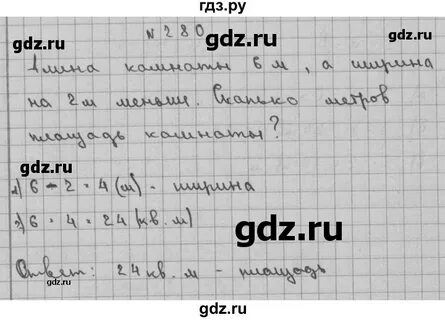 гдз.ру
№280
gdz.ru gdz.ru
Длина комнаты 6 м, а ширина
на 2 м меньше. Сколько метров
gdz.ru
площадь комнаты?
gdz.ru
1) 6 - 2 = 4 (м) - ширина
2) 6 · 4 = 24 (кв. м)
gdz.ru
gdz.ru
Ответ: 24 кв. м - площадь
gdz.ru
гдз.ру